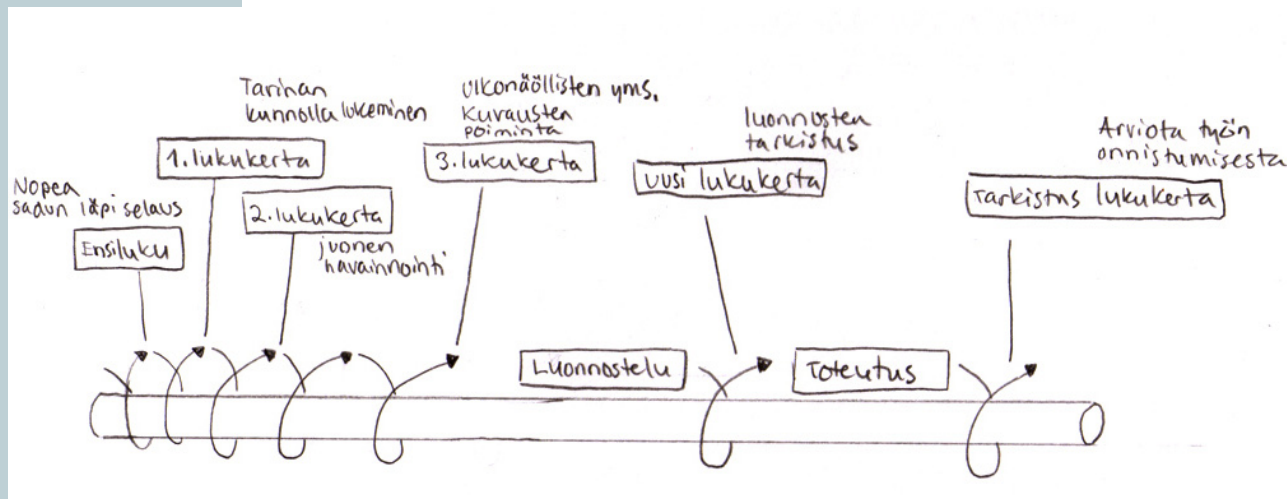 Nopea
sadun läpi selaus
Ensiluku
Tarinan
kunnolla lukeminen
1. lukukerta
2. lukukerta
juonen
havainnointi
ulkonäöllisten yms.
kuvausten
poiminta
3. lukukerta
Luonnostelu
luonnosten
tarkistus
uusi lukukerta
Toteutus
Arviota työn
onnistumisesta
Tarkistus lukukerta